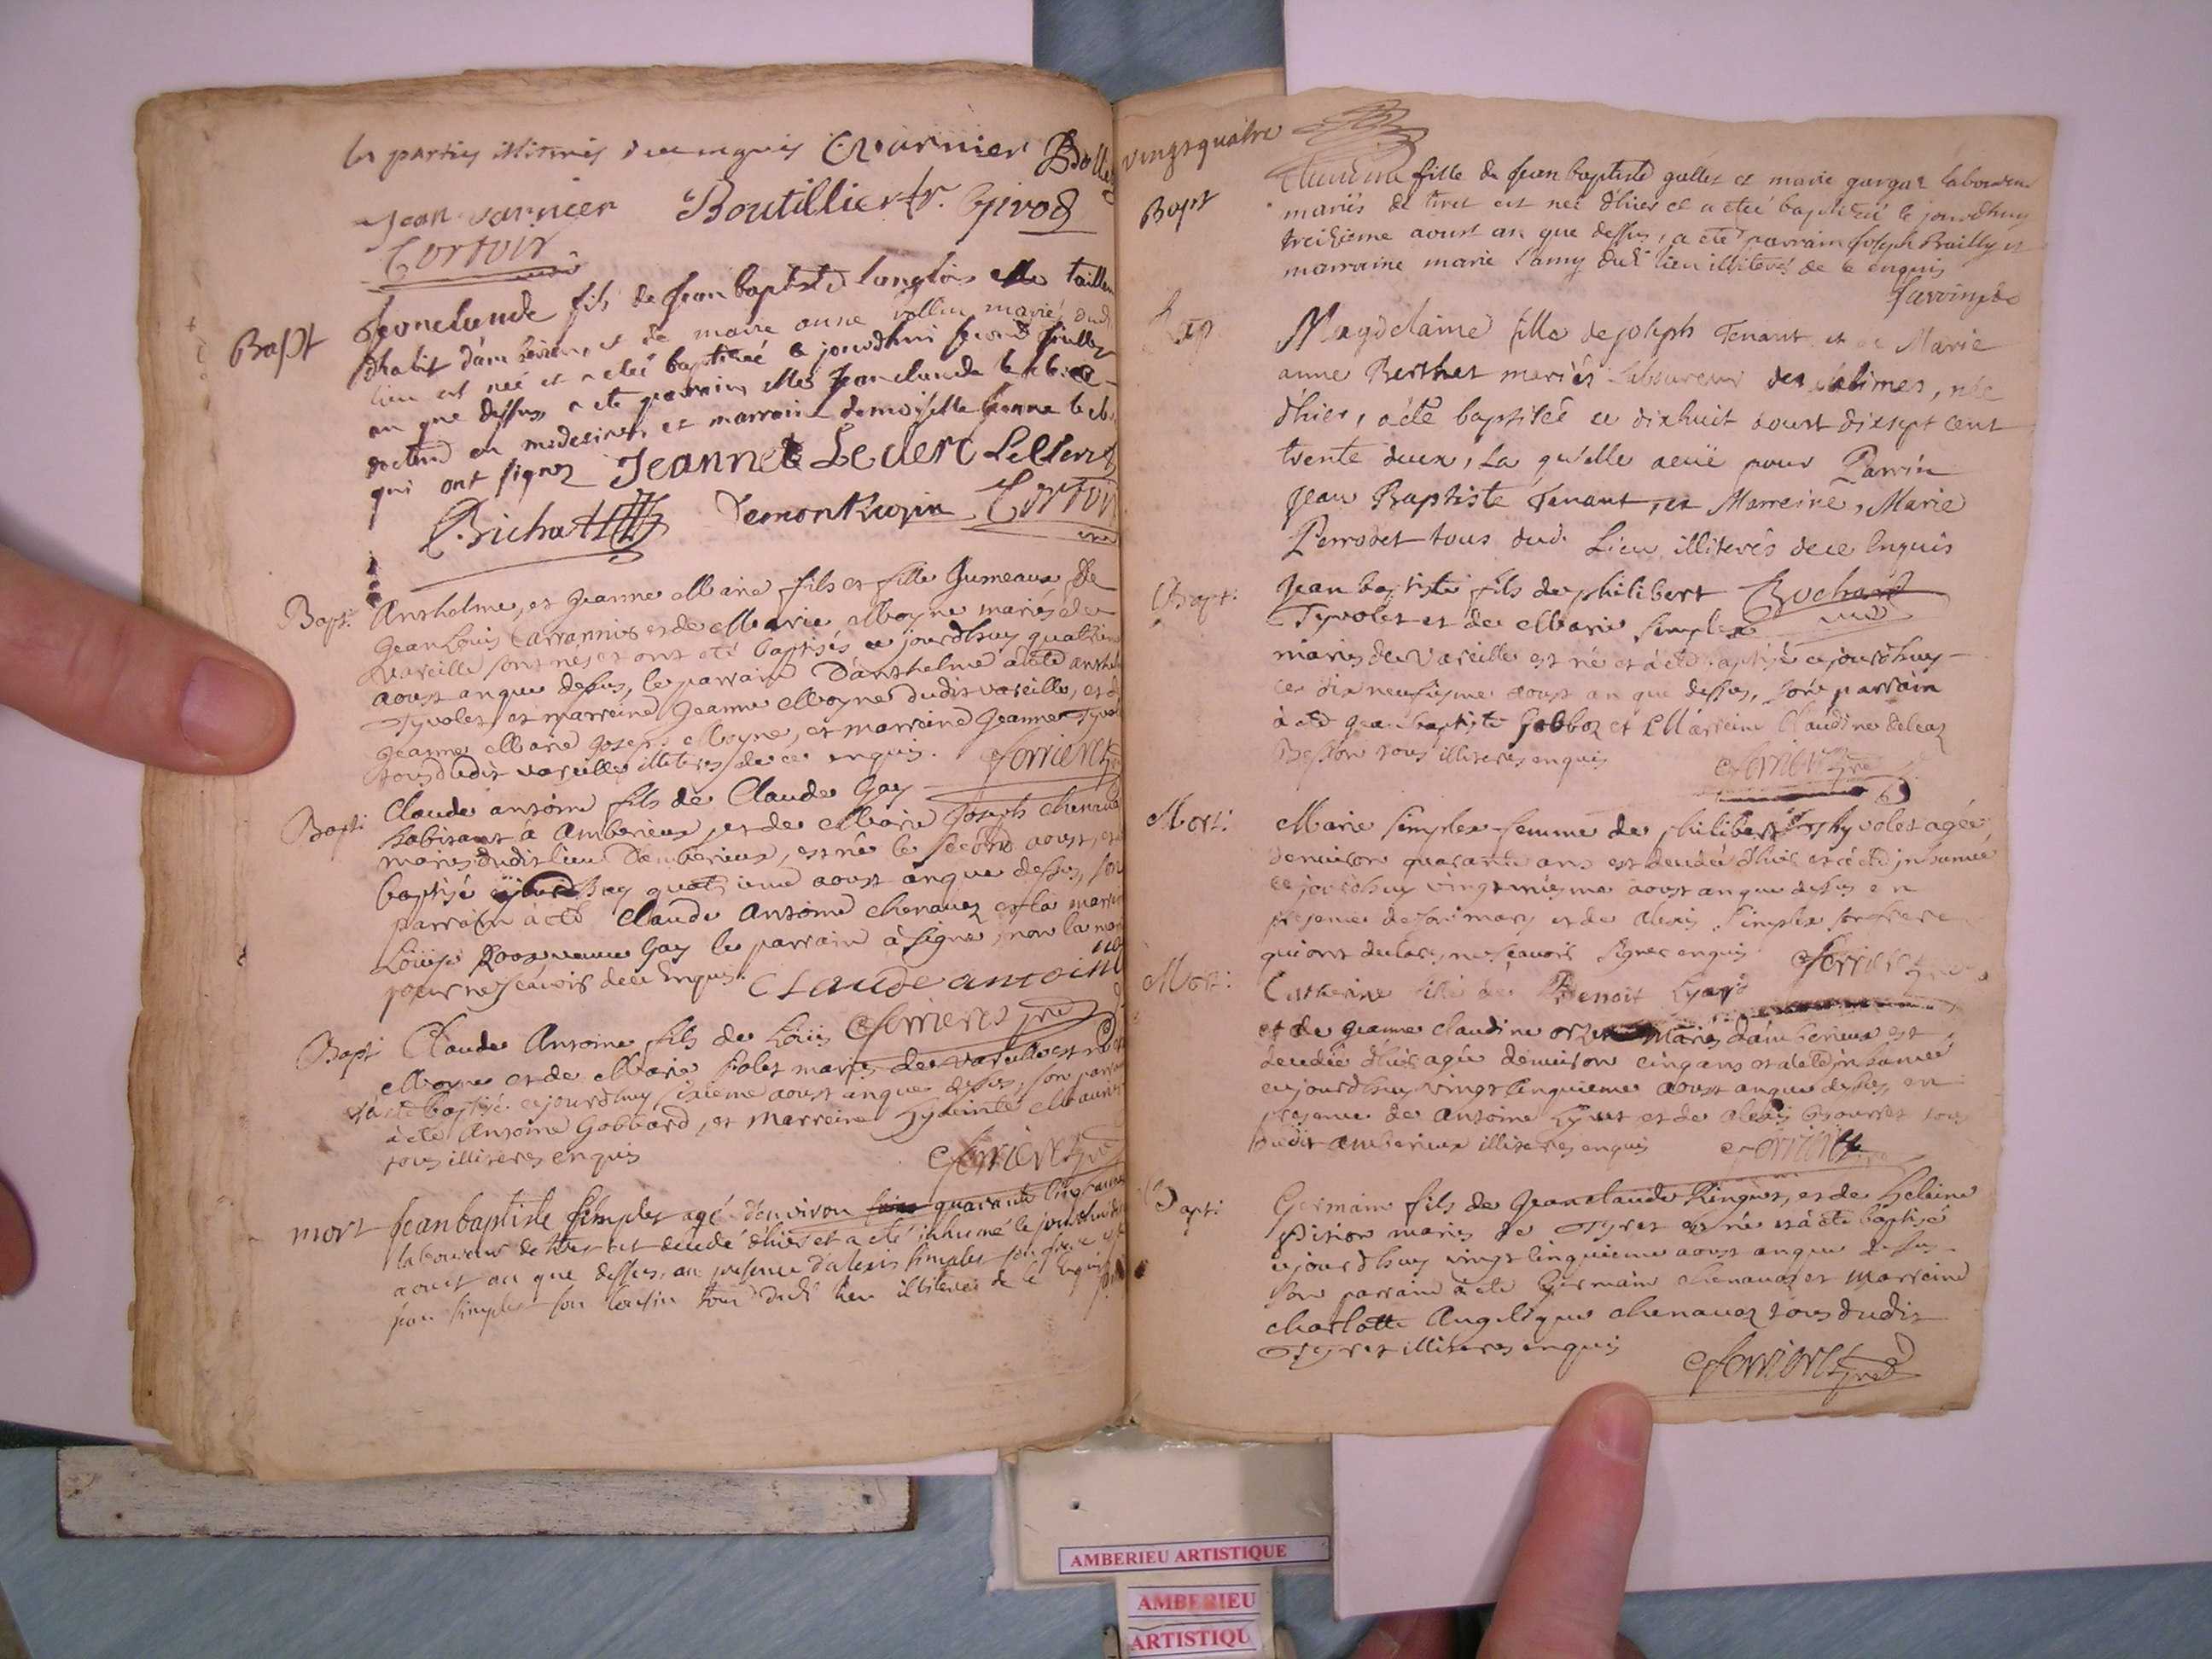 les parties illiterés de ce enquis Charnier
Jean varnier Boutillier Girod
Cortoir
Bapt Jeonclaude fils de Jean baptiste langlois tailleur
dhabit dambérieu, et de marie anne mariés dud
lieu est neé et a eteé baptiseé le jourdhui second
an que dessus, a eté parrain Jeanclaude
docteur en medecine, et marraine demoiselle Jeanne
qui ont signez Jeanne Leclerc
Bichat Demonkuzin Cortoir
curé
Bapt: Anthelme, et Jeanne Marie fils et fille Jumeaux de
Jean Louis et de Marie Moyne mariés de
Vareille sont nés et ont eté baptisés ce jourdhuy quatrieme
aoust an que dessus, le parrain D'anthelme a eté
Tyvolet et marreine Jeanne Moyne dudit vareille, et de
Jeanne Marie Joseph Moyne, et marreine Jeanne
tous dudit vareille illiteres de ce enquis. ferrieres
Bapt: Claude antoine fils de Claude Gay
habitant à Amberieux, et de Marie Joseph chenavaz
mariés dudit lieu D'amberieux, est né le second aoust, et
baptisé ce jourdhuy quatrieme aoust an que dessus, son
parrain à eté Claude Antoine chenavaz et la marreine
Loüise veuve Gay le parrain à signé, non la
pour ne sçavoir de ce Enquis. Claude antoine
ferrieres pre
Bapt Claude Antoine fils de Loüis
Moyne et de Marie folet mariés de vareille est né et
et à eté Baptisé cejourdhuy sixieme aoust an que dessus, son parrain
à eté Antoine Gobbard, et Marreine Hyacinte
tous illiteres enquis ferrieres pre
mort Jean baptiste simplet agé d'environ quarante cinq
laboureur de tiret est decedé d'hier et a eté inhumé le jourdhui
aout an que dessus, en presence d'alexis simplet son frere et
simplet son cousin tous dudt lieu illiterés de ce enquis
vingt quatre
Bapt Claudine fille de Jean baptiste gallet et marie laboureur
mariés de tiret est neé d'hier et a eteé baptiseé le jourdhuy
treizieme aoust an que dessus, a eté parrain Joseph Brailly et
marraine marie Samy dudt lieu illiterés de ce enquis
Bap Magdelaine fille de joseph Tenant et de Marie
anne Berthet mariés laboureur des alimes, née
d'hier, a été baptisée ce dixhuit aoust dixsept cent
trente deux, La qu'elle a eüe pour Parrin
Jean Baptiste Tenant, et Marreine, Marie
Perrodet tous dud. Lieu illiterés de ce Enquis
Bapt: Jean baptiste fils de philibert Bochard
Tyvolet et de Marie simplex
mariés de Vareille est né et à eté baptisé ce jourdhuy
ce dix neufiesme aoust an que dessus, son parrain
à eté Jean baptiste Gobboz et Marreine Claudine
Besson tous illiteres enquis
ferrieres pre
Mort: Marie simplex femme de philibert Thyvolet agée
denviron quarante ans est decedée d'hier et à eté inhumée
ce jourdhuy vingtiesme aoust an que dessus en
presence de son mary et de Alexis simplex son frere
qui ont declaré, ne sçavoir signer enquis ferrieres pre
Mort: Catherine fille de Benoit
et de Jeanne claudine mariés d'amberieux est
decedée d'hier agée denviron cinq ans et a eté inhumée
cejourdhuy vingt cinquieme aoust an que dessus, en
presence de Antoine et de Alexis tous
dudit amberieux illiteres enquis ferrieres
Bapt: Germain fils de Jeanclaude Ringuet, et de Helaine
Pirion mariés de Tyret est né et à eté baptisé
cejourdhuy vingt cinquieme aoust an que dessus
son parrain à eté Germain chenavaz et Marreine
charlotte Angelique chenavaz tous dudit
Tyret illiteres enquis
ferrieres pre
AMBERIEU ARTISTIQUE
AMBERIEU
ARTISTIQU